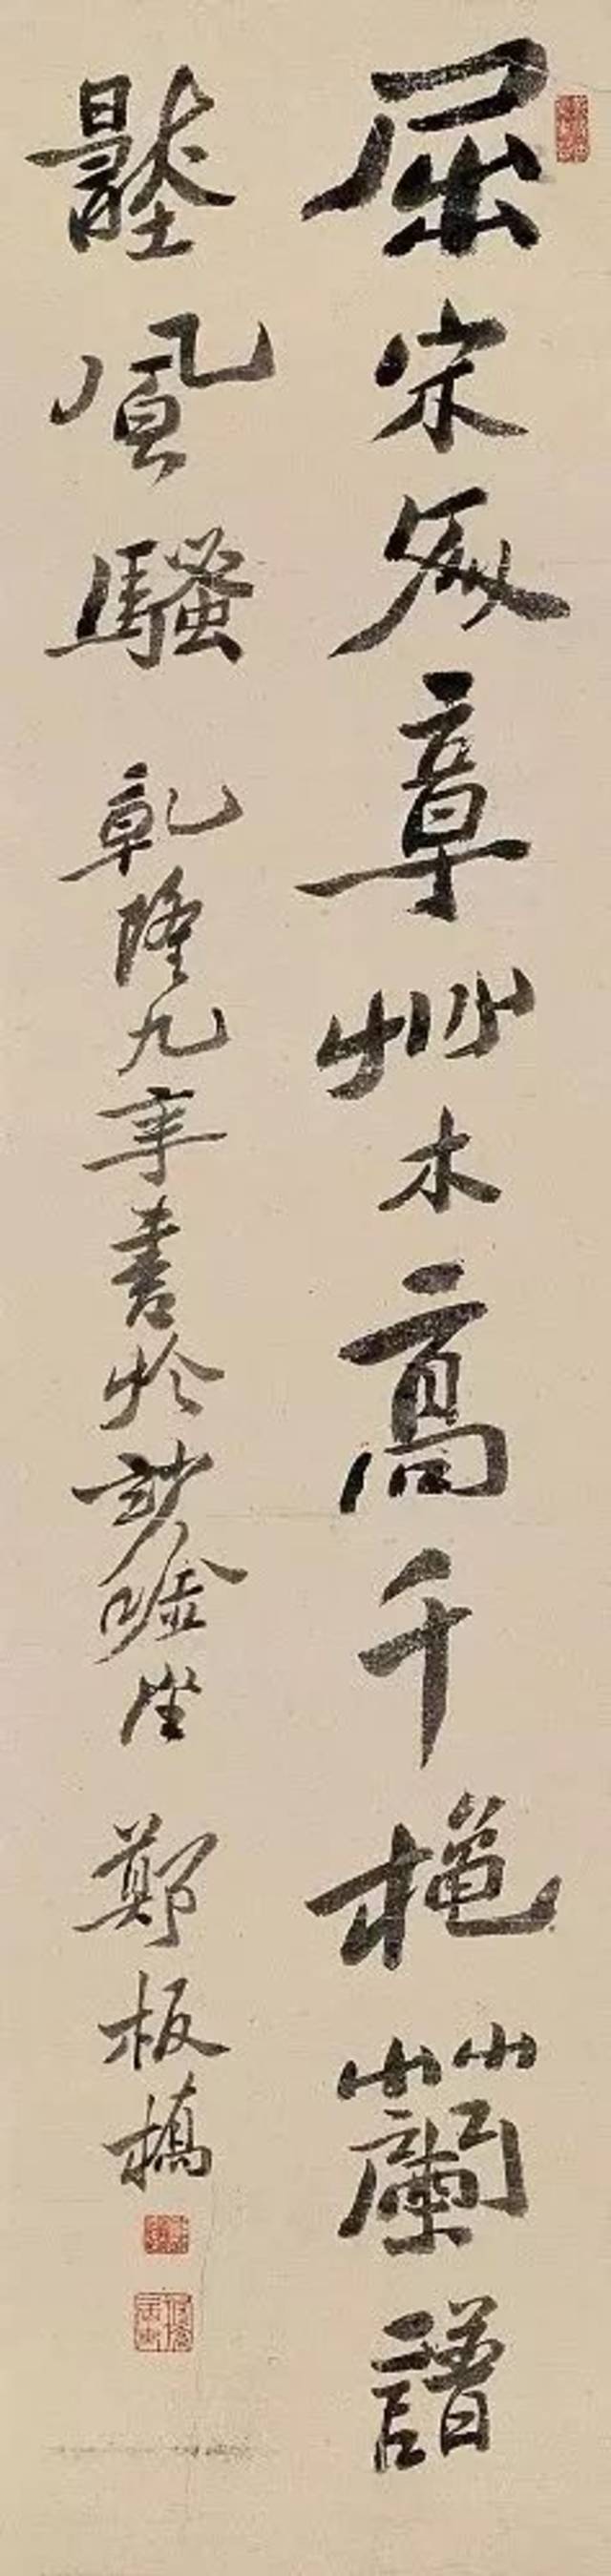 屈宋文章艸木高千秋蘭譜
壓風騷 乾隆九年書於 鄭板橋